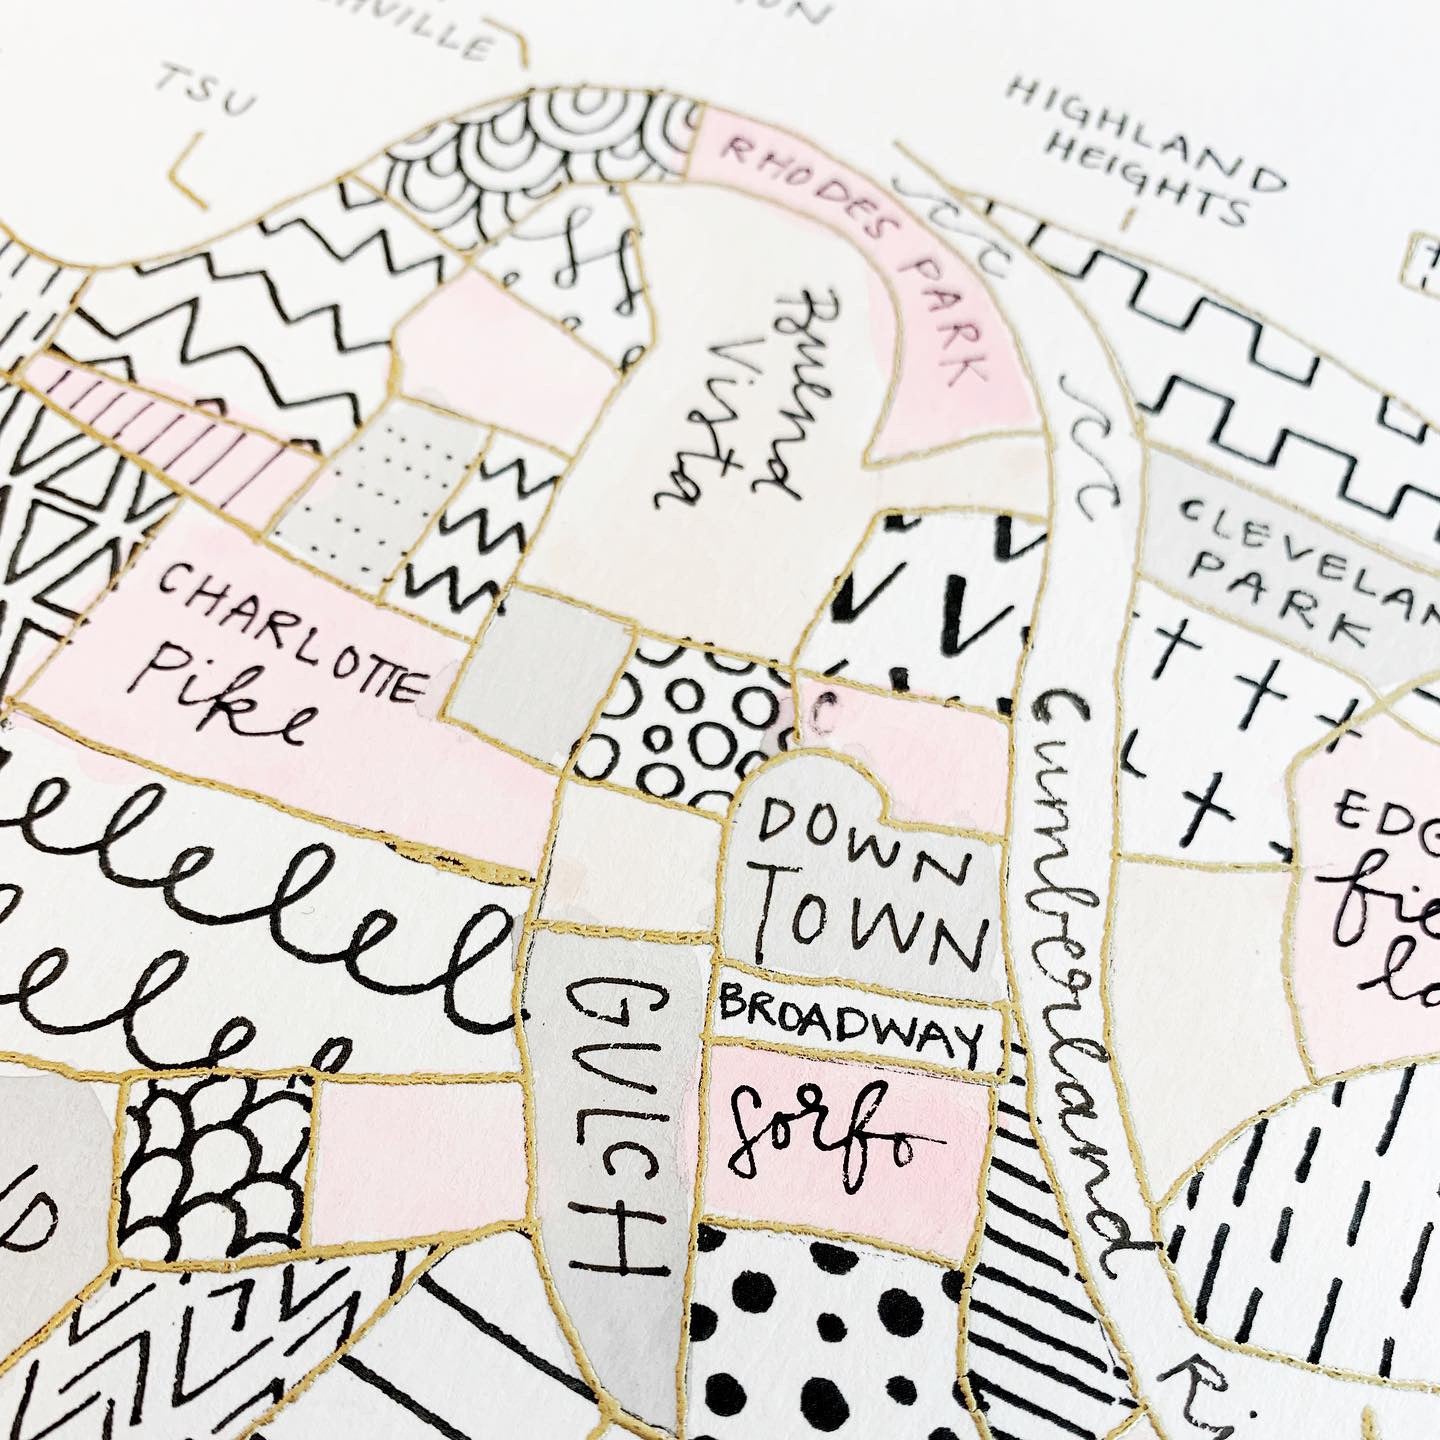 HVILLE
ON
TSU
HIGHLAND
HEIGHTS
RHODES PARK
Buena
Vista
CLEVELAN
PARK
CHARLOTTE
Pike
Cumberland
Ri
EDG
fie
lo
DOWN
TOWN
BROADWAY
GULCH
SoBro